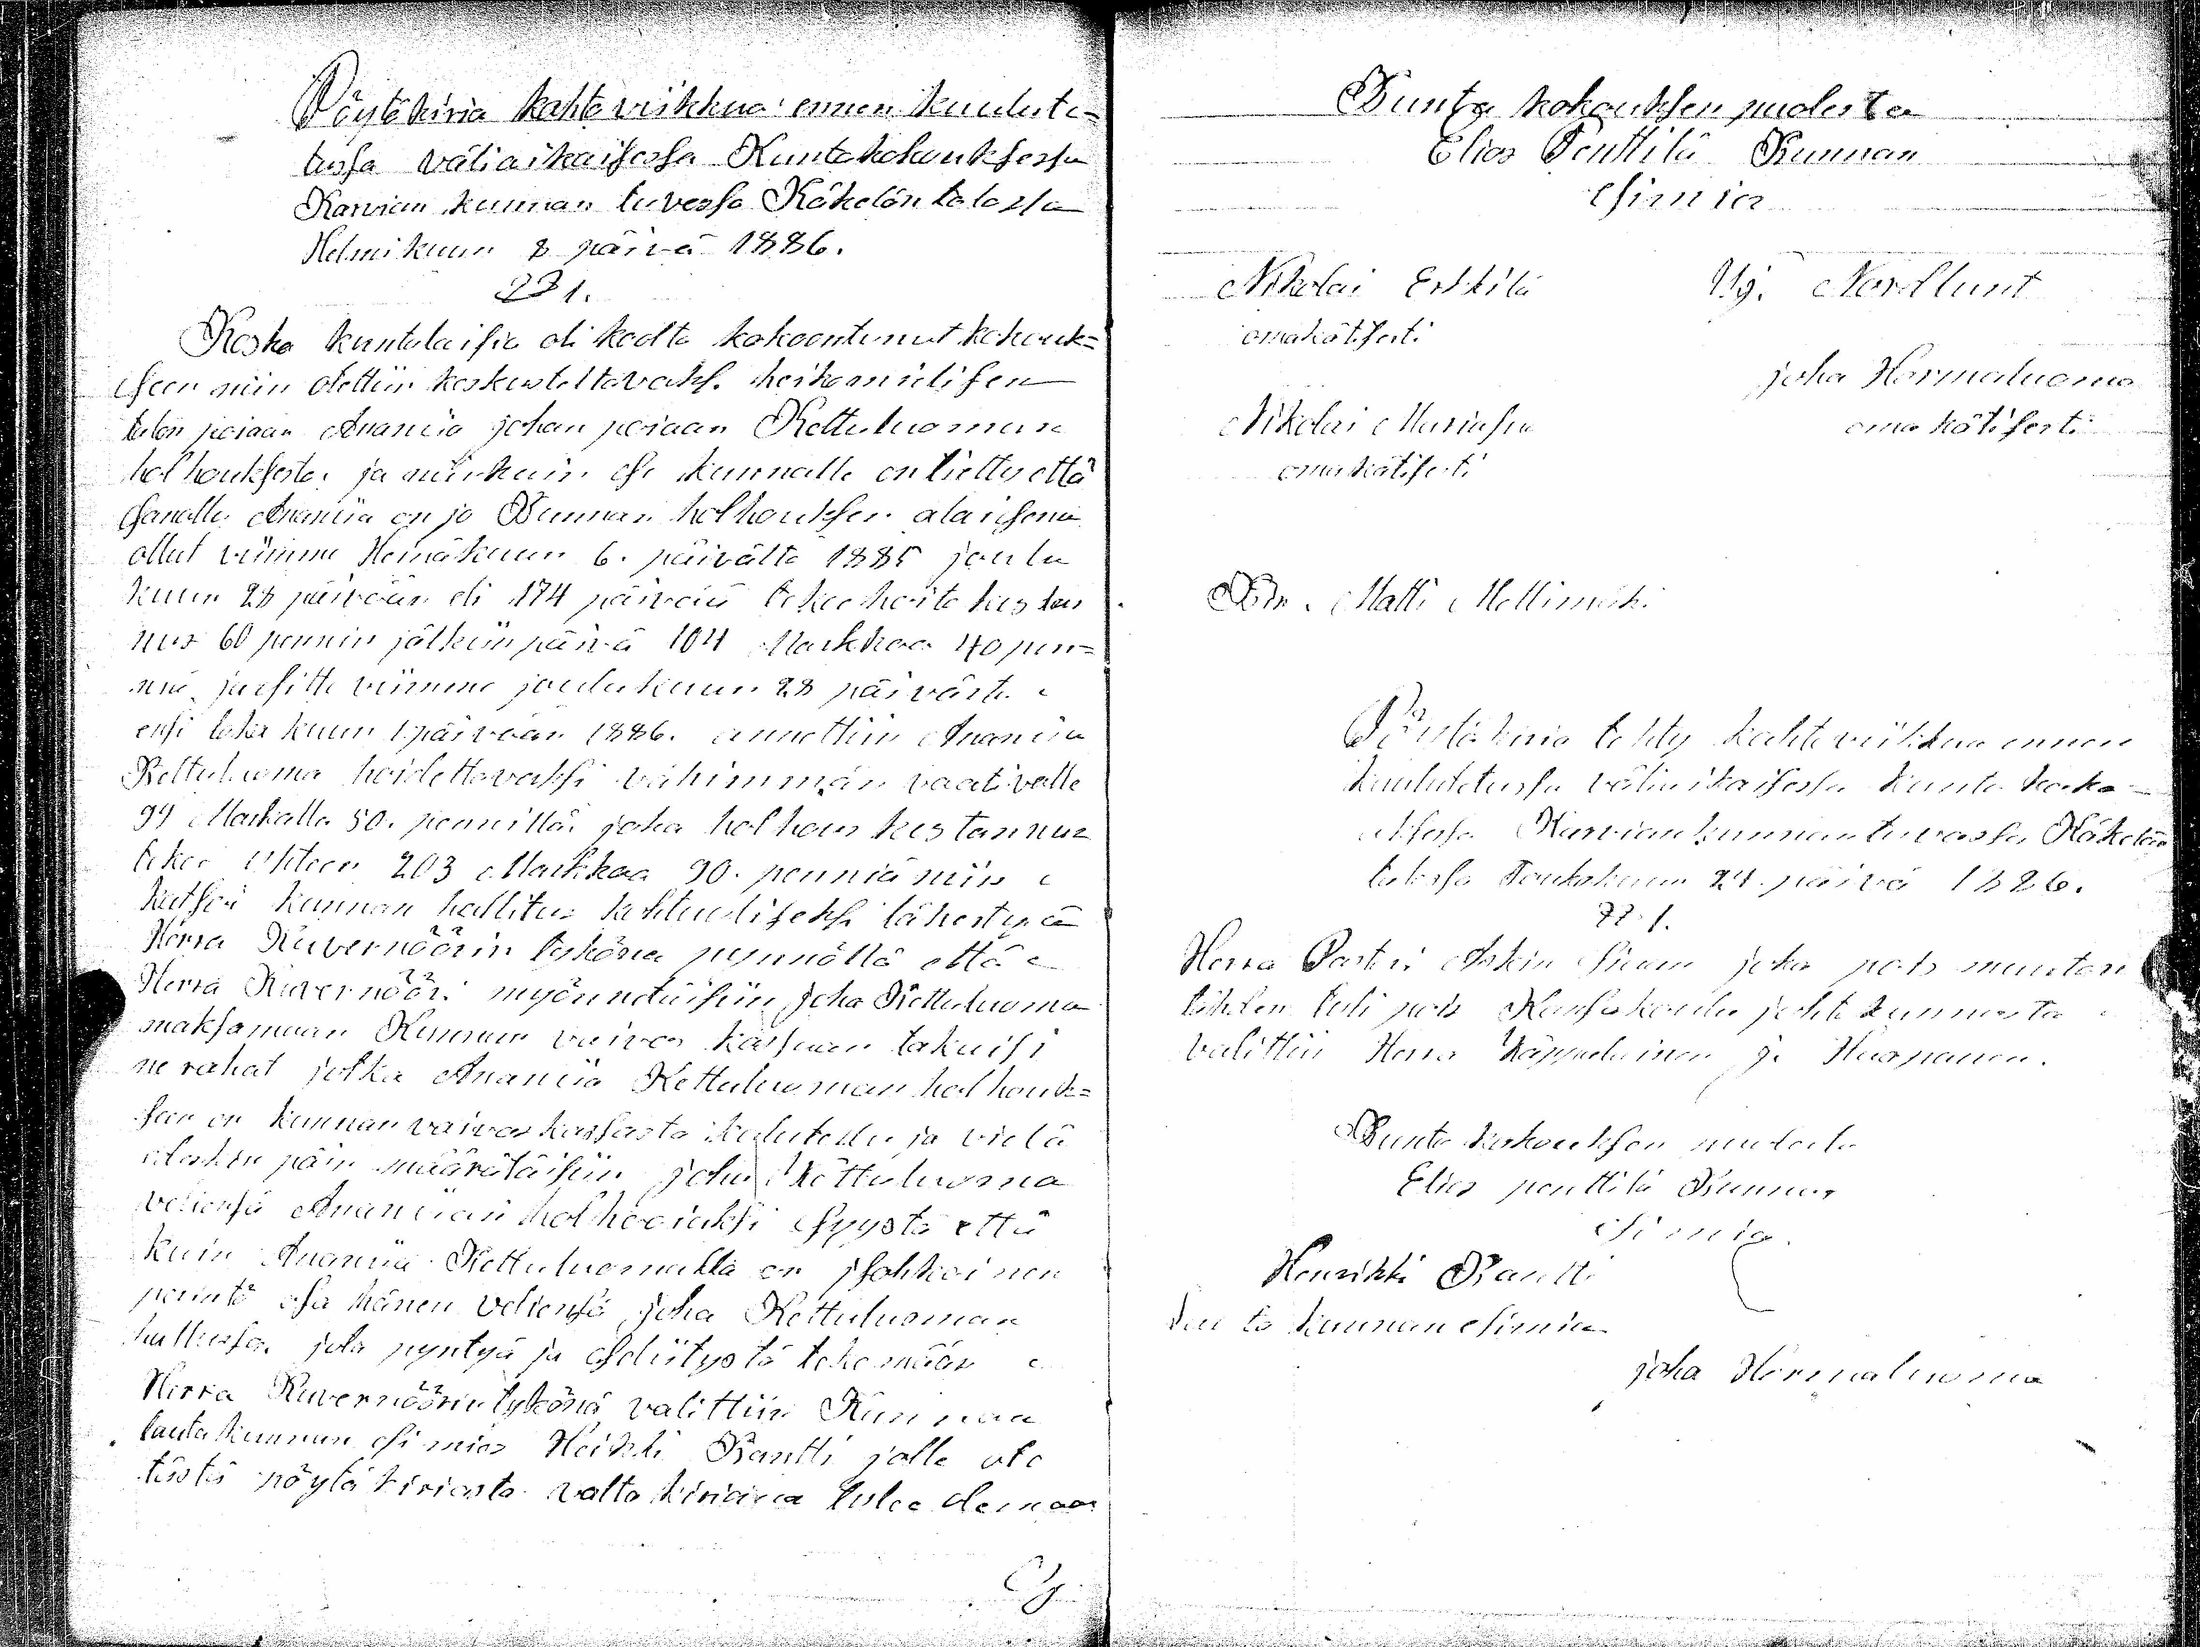 Pöytäkiria kahta viikkua ennen kuulute=
tussa väliaikaisessa Kuntakokouksessa
Karvian kunnan tuvassa Käkelän talossa
Helmikuun 8 päivä 1886.
§ 1.
Koska kuntalaisia oli koolta kokoontunut kokouk=
seen niin otettiin keskusteltavaks. heikomielisen
talon poiaan Ananiia johan poiaan Kettuluoman
holhouksesta. ja niinkuin esi kunnalle on tietty että
sanottu Ananiia on jo Kunnan holhouksen alaisena
ollut viimme Heinäkuun 6. päivältä 1885 joulu
kuun 28 päivään eli 174 päivää tekee hoito kustan
nus 60 pennin jälkiin päivä 104 Markkaa 40 pen=
niä, ja sitte viimme joulukuun 28 päivästä
ensi loka kuun 1 päivään 1886. annettiin Ananiia
Kettuluoma hoidettavaksi vähimmän vaativalle
99 Markalla 50. pennillä joka holhous kustannus
tekee yhteen 203 Markkaa 90. penniä niin
katsoi kunnan hallitus kohtuuliseksi lähestyä
Herra Kuvernöörin tykönä pynnöllä että
Herra Kuvernööri myönnetäisiin joha Kettuluoma
maksamaan Kunnan vaivas kassaan takaisi
ne rahat jotka Ananiia Kettuluoman holhouk=
seen on kunnan vaivas kassasta kulutettu ja vielä
eteskin päin määrätäisiin joha Kettuluoma
veliensä Ananiian holhooiaksi syystä että
kuin Ananiia Kettuluomalla on johkoinen
perintö osa hänen veliensä joha Kettuluoman
hallussa, jota pyntyä ja selitystä tekemään
Herra Kuvernöörin tykönä valittiin Kunnan
lautakunnan esimies Heikki Rantti jolle ote
tästä pöytäkiriasta valta kiriana tulee olemaan
Kunta kokouksen puolesta
Elias Penttilä Kunnan
esimies
Nikolai Erkkilä Vj. Nordlunt
omakätisesti
joha Hormaluoma
Nikolai omakätisesti
omakätisesti
Matti Mellimäki
Pöytäkiria tehty kahta viikkua ennen
kuulutetussa väliaikaisessa kunta koko=
uksessa Karvian kunnan tuvassa Käkelän
talossa Toukokuun 24. päivä 1886.
§ 1.
Herra Pastori Askin siaan joka pois muuton
tähden tuli pois Kansakoulu johtokunnasta
valittiin Herra Käppeläinen ja Huopanen.
Kunta kokouksen puolesta
Elias penttilä Kunnan
esimies.
Henrikki Rantti
lautakunnan esimies
joha Hormaluoma